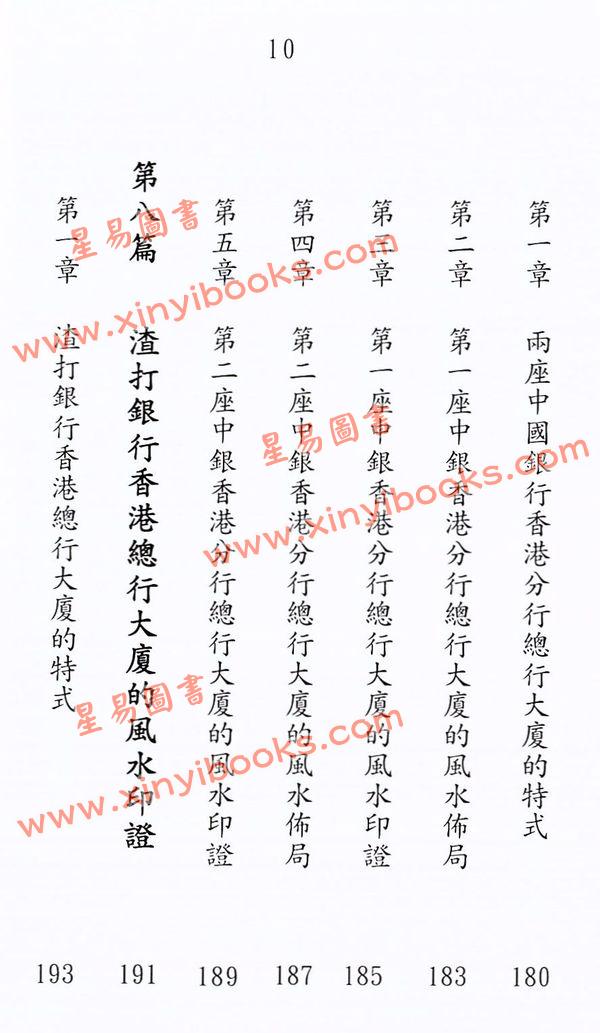 10
第一章 兩座中國銀行香港分行總行大廈的特式 180
第二章 第一座中銀香港分行總行大廈的風水佈局 183
第三章 第一座中銀香港分行總行大廈的風水印證 185
第四章 第二座中銀香港分行總行大廈的風水佈局 187
第五章 第二座中銀香港分行總行大廈的風水印證 189
第八篇 渣打銀行香港總行大廈的風水印證 191
第一章 渣打銀行香港總行大廈的特式 193
星易圖書
www.xinyibooks.com
星易圖書
www.xinyibooks.com
星易圖書
www.xinyibooks.com